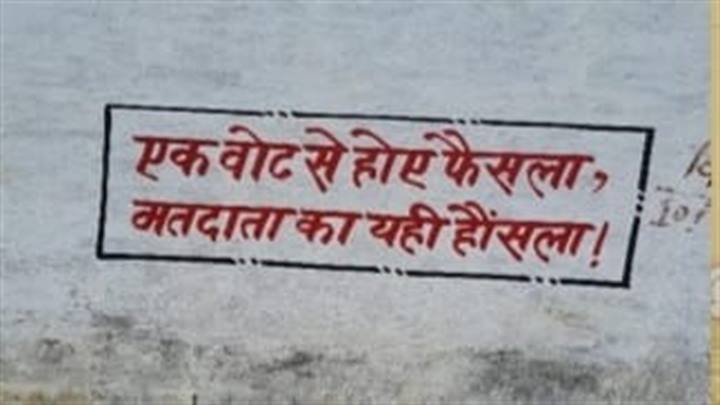 एक वोट से होए फैसला,
मतदाता का यही हौंसला!